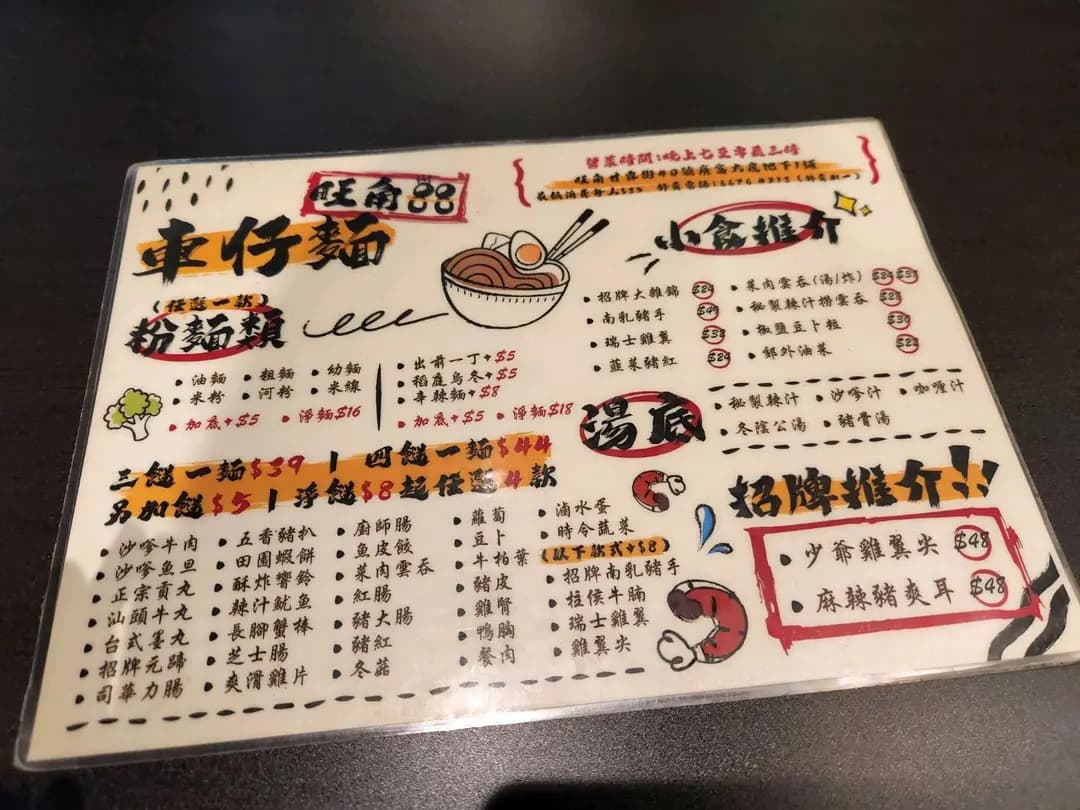 旺角
車仔麵
營業時間:晚上七至零晨三時
小食推介
招牌大雜錦 $29
南乳豬手
瑞士雞翼 $38
韮菜豬紅 $29
菜肉雲吞(湯/炸)
秘製辣汁撈雲吞
椒鹽豆卜粒
郊外油菜
(任選一款)
粉麵類
油麵
粗麵
幼麵
米粉
河粉
米線
加底+$5
淨麵$16
出前一丁+$5
稻庭烏冬+$5
辛辣麵+$8
加底+$5
淨麵$18
湯底
秘製辣汁
沙嗲汁
咖喱汁
冬蔭公湯
豬骨湯
三餸一麵$39 | 四餸一麵$44
另加餸$5 | 淨餸$8起任選4款
沙嗲牛肉
沙嗲魚旦
正宗貢丸
汕頭牛丸
台式墨丸
招牌元蹄
司華力腸
五香豬扒
田園蝦餅
酥炸響鈴
辣汁魷魚
長腳蟹棒
芝士腸
爽滑雞片
廚師腸
魚皮餃
菜肉雲吞
紅腸
豬大腸
豬紅
冬菇
蘿蔔
豆卜
牛柏葉
豬皮
雞腎
鴨胸
餐肉
滷水蛋
時令蔬菜
(以下款式+$8)
招牌南乳豬手
柱侯牛腩
瑞士雞翼
雞翼尖
招牌推介!!
少爺雞翼尖 $48
麻辣豬爽耳 $48